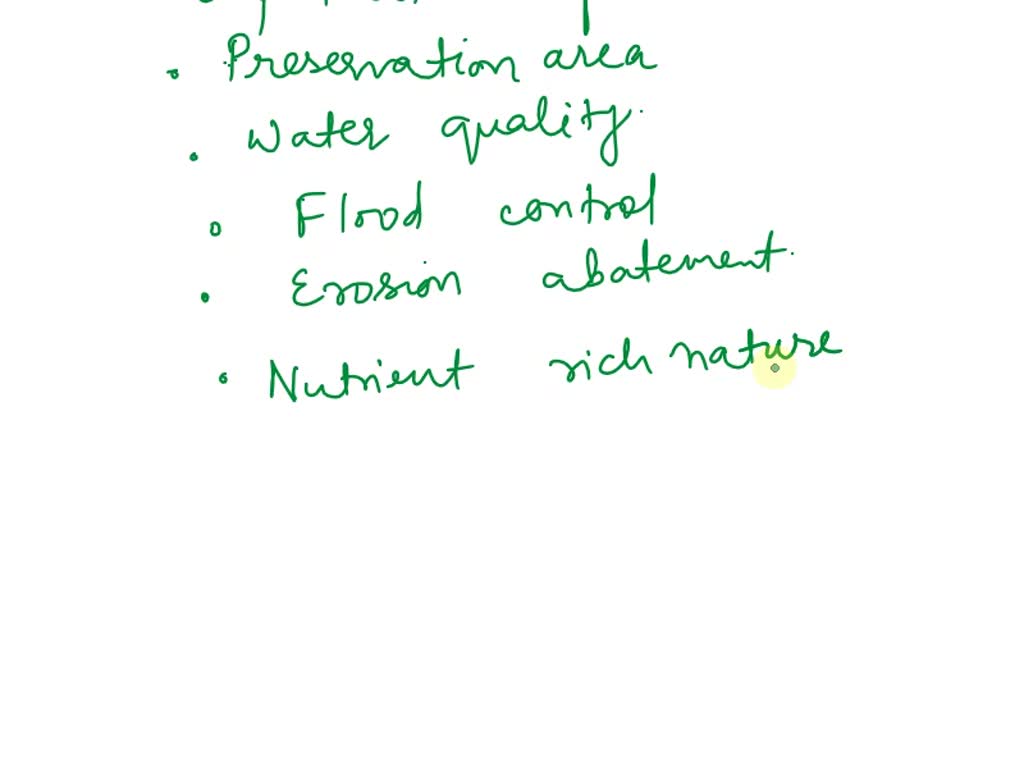 • Preservation area
• Water quality.
• Flood control
• Erosion abatement.
• Nutrient rich nature